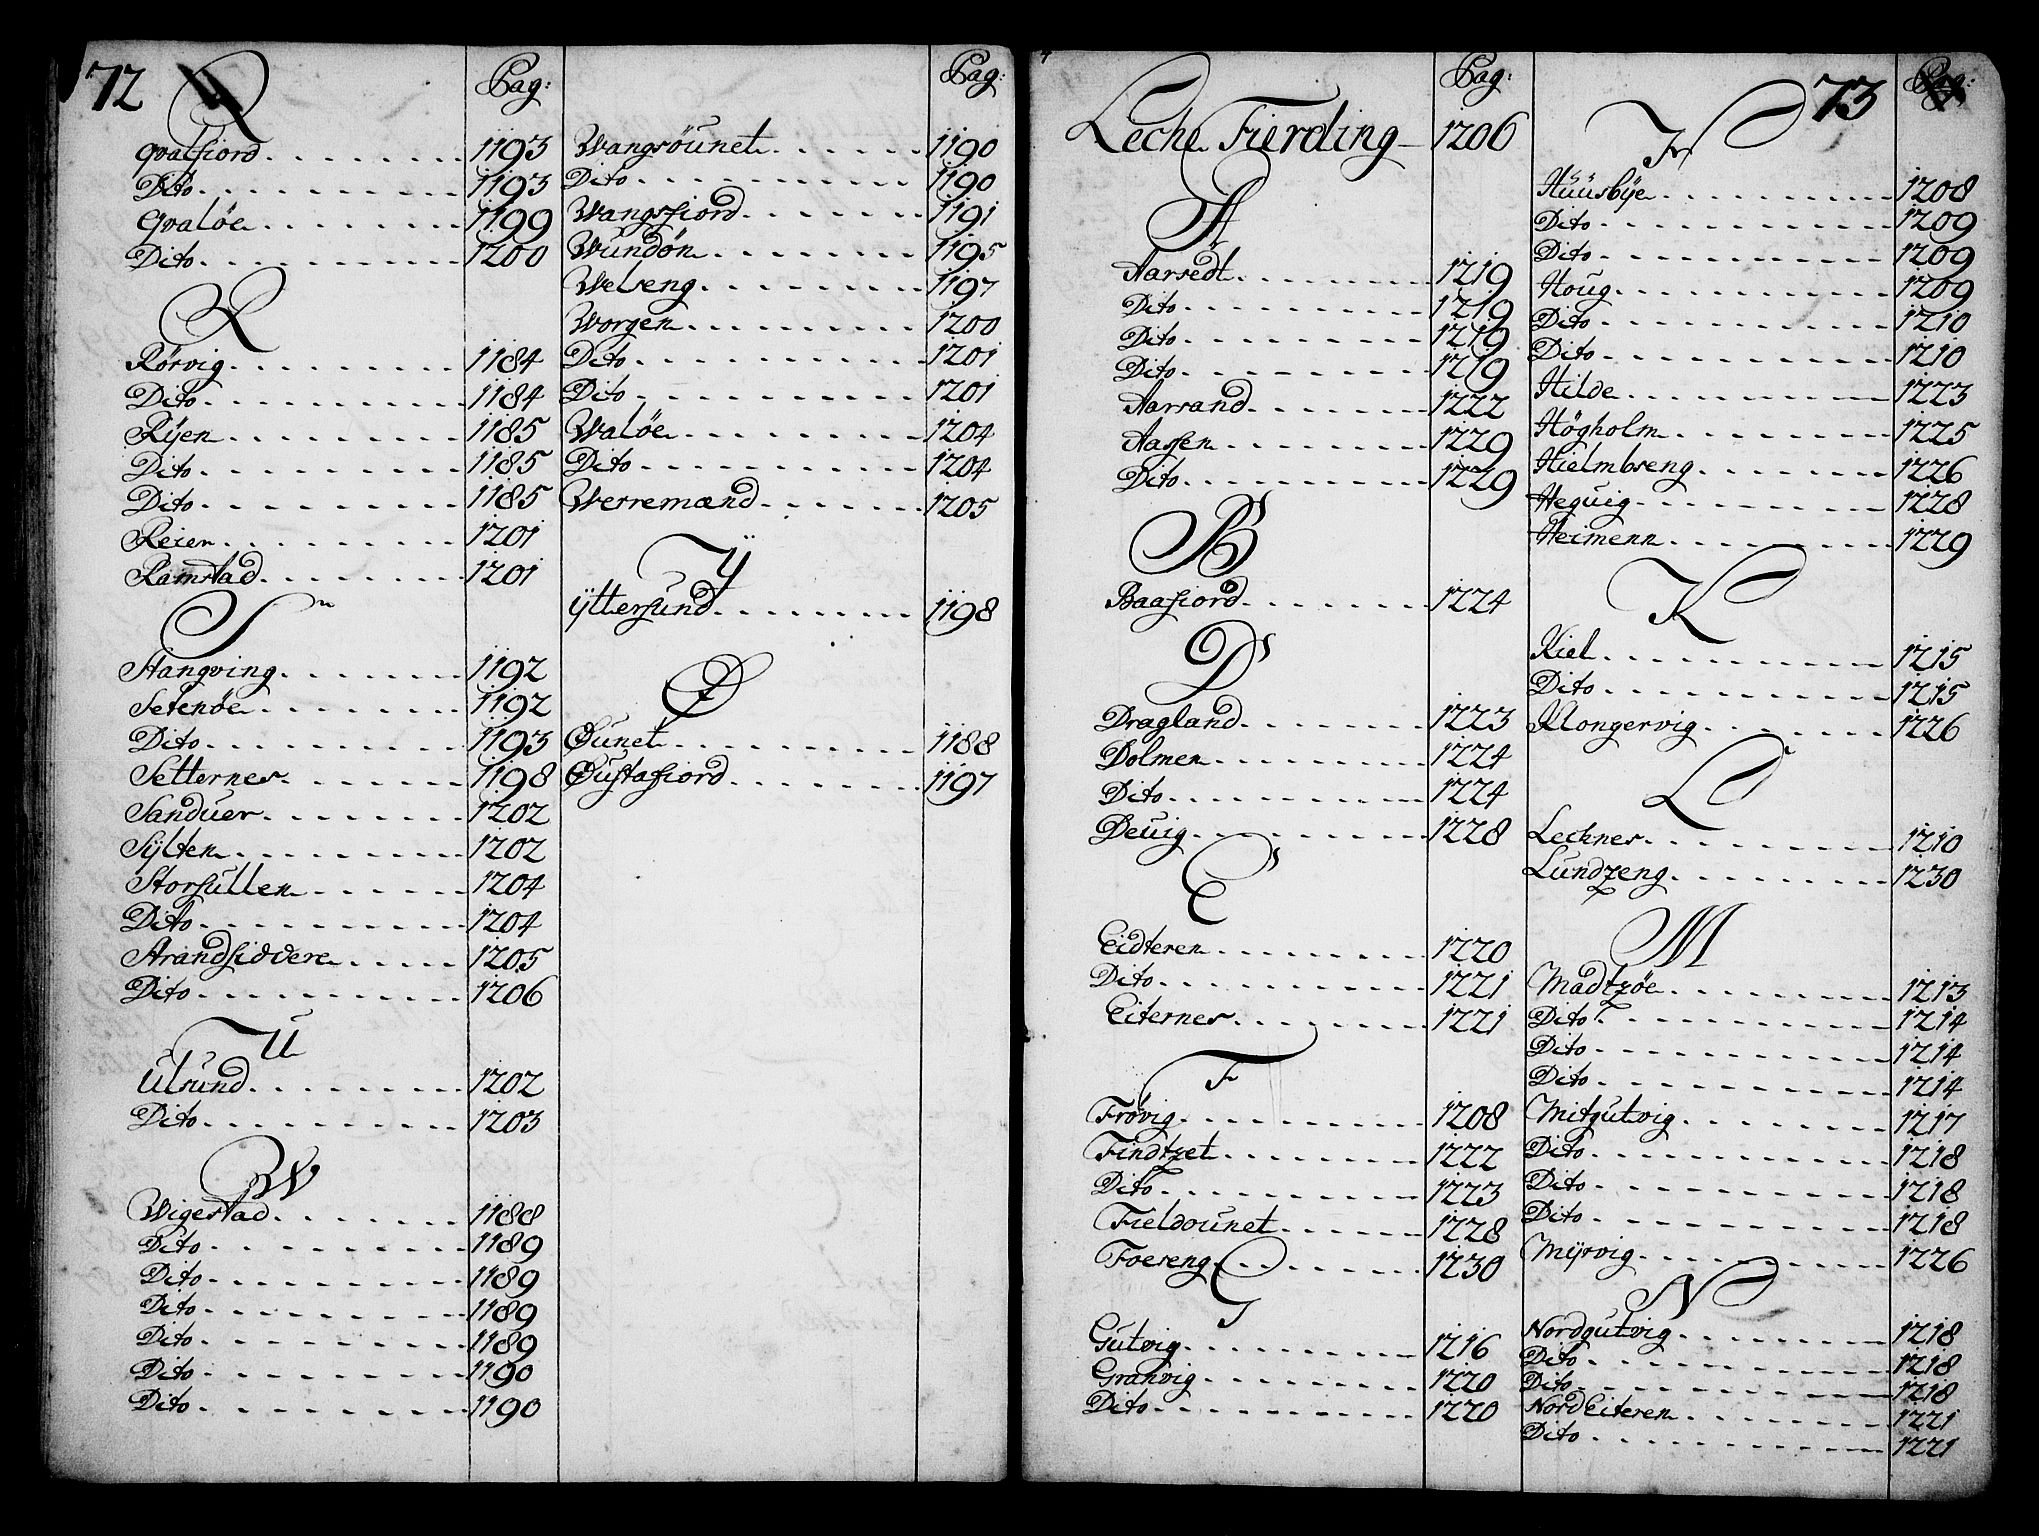 72
Q
Pag:
Qvalfiord 1193
Dito 1193
Qvaløe 1199
Dito 1200
R
Rörvig 1184
Dito 1184
Rÿen 1185
Dito 1185
Dito 1185
Reier 1201
Ramstad 1201
S
Stangving 1192
Selenöe 1192
Dito 1193
Setternes 1198
Sanduer 1202
Sÿlten 1202
Storsullen 1204
Dito 1204
Strandfiddere 1205
Dito 1206
U
Ulsund 1202
Dito 1203
W
Wigestad 1188
Dito 1189
Dito 1189
Dito 1189
Dito 1189
Dito 1190
Dito 1190
Pag:
Wangsöunet 1190
Dito 1190
Wangsfiord 1191
Wundön 1195
Welveng 1197
Worgen 1200
Dito 1201
Dito 1201
Waløe 1204
Dito 1204
Werremænd 1205
Ÿ
Ÿttersund 1198
Ø
Øunet 1188
Øustafiord 1197
Leche Fierding 1206
Pag:
A
Aarsedt 1219
Dito 1219
Dito 1219
Dito 1219
Aarsand 1222
Aassen 1229
Dito 1229
B
Baafiord 1224
D
Dragland 1223
Dolmen 1224
Dito 1224
Deuig 1228
E
Eidteren 1220
Dito 1221
Eiternes 1221
F
Frövig 1208
Findtzet 1222
Dito 1223
Fieldounet 1228
Foereng 1230
G
Gutvig 1216
Granvig 1220
Dito 1220
73
Pag:
H
Huusbÿe 1208
Dito 1209
Dito 1209
Houg 1209
Dito 1210
Dito 1210
Hilde 1223
Högholm 1225
Hielmbreng 1226
Heguig 1228
Heimenn 1229
K
Kiel 1215
Dito 1215
Klongervig 1226
L
Lechnes 1210
Lundzeng 1230
M
Madtzöe 1213
Dito 1214
Dito 1214
Dito 1214
Mitgutvig 1217
Dito 1218
Dito 1218
Dito 1218
Mÿrvig 1226
N
Nordgutvig 1218
Dito 1218
Dito 1218
Nord Eiteren 1221
Dito 1221